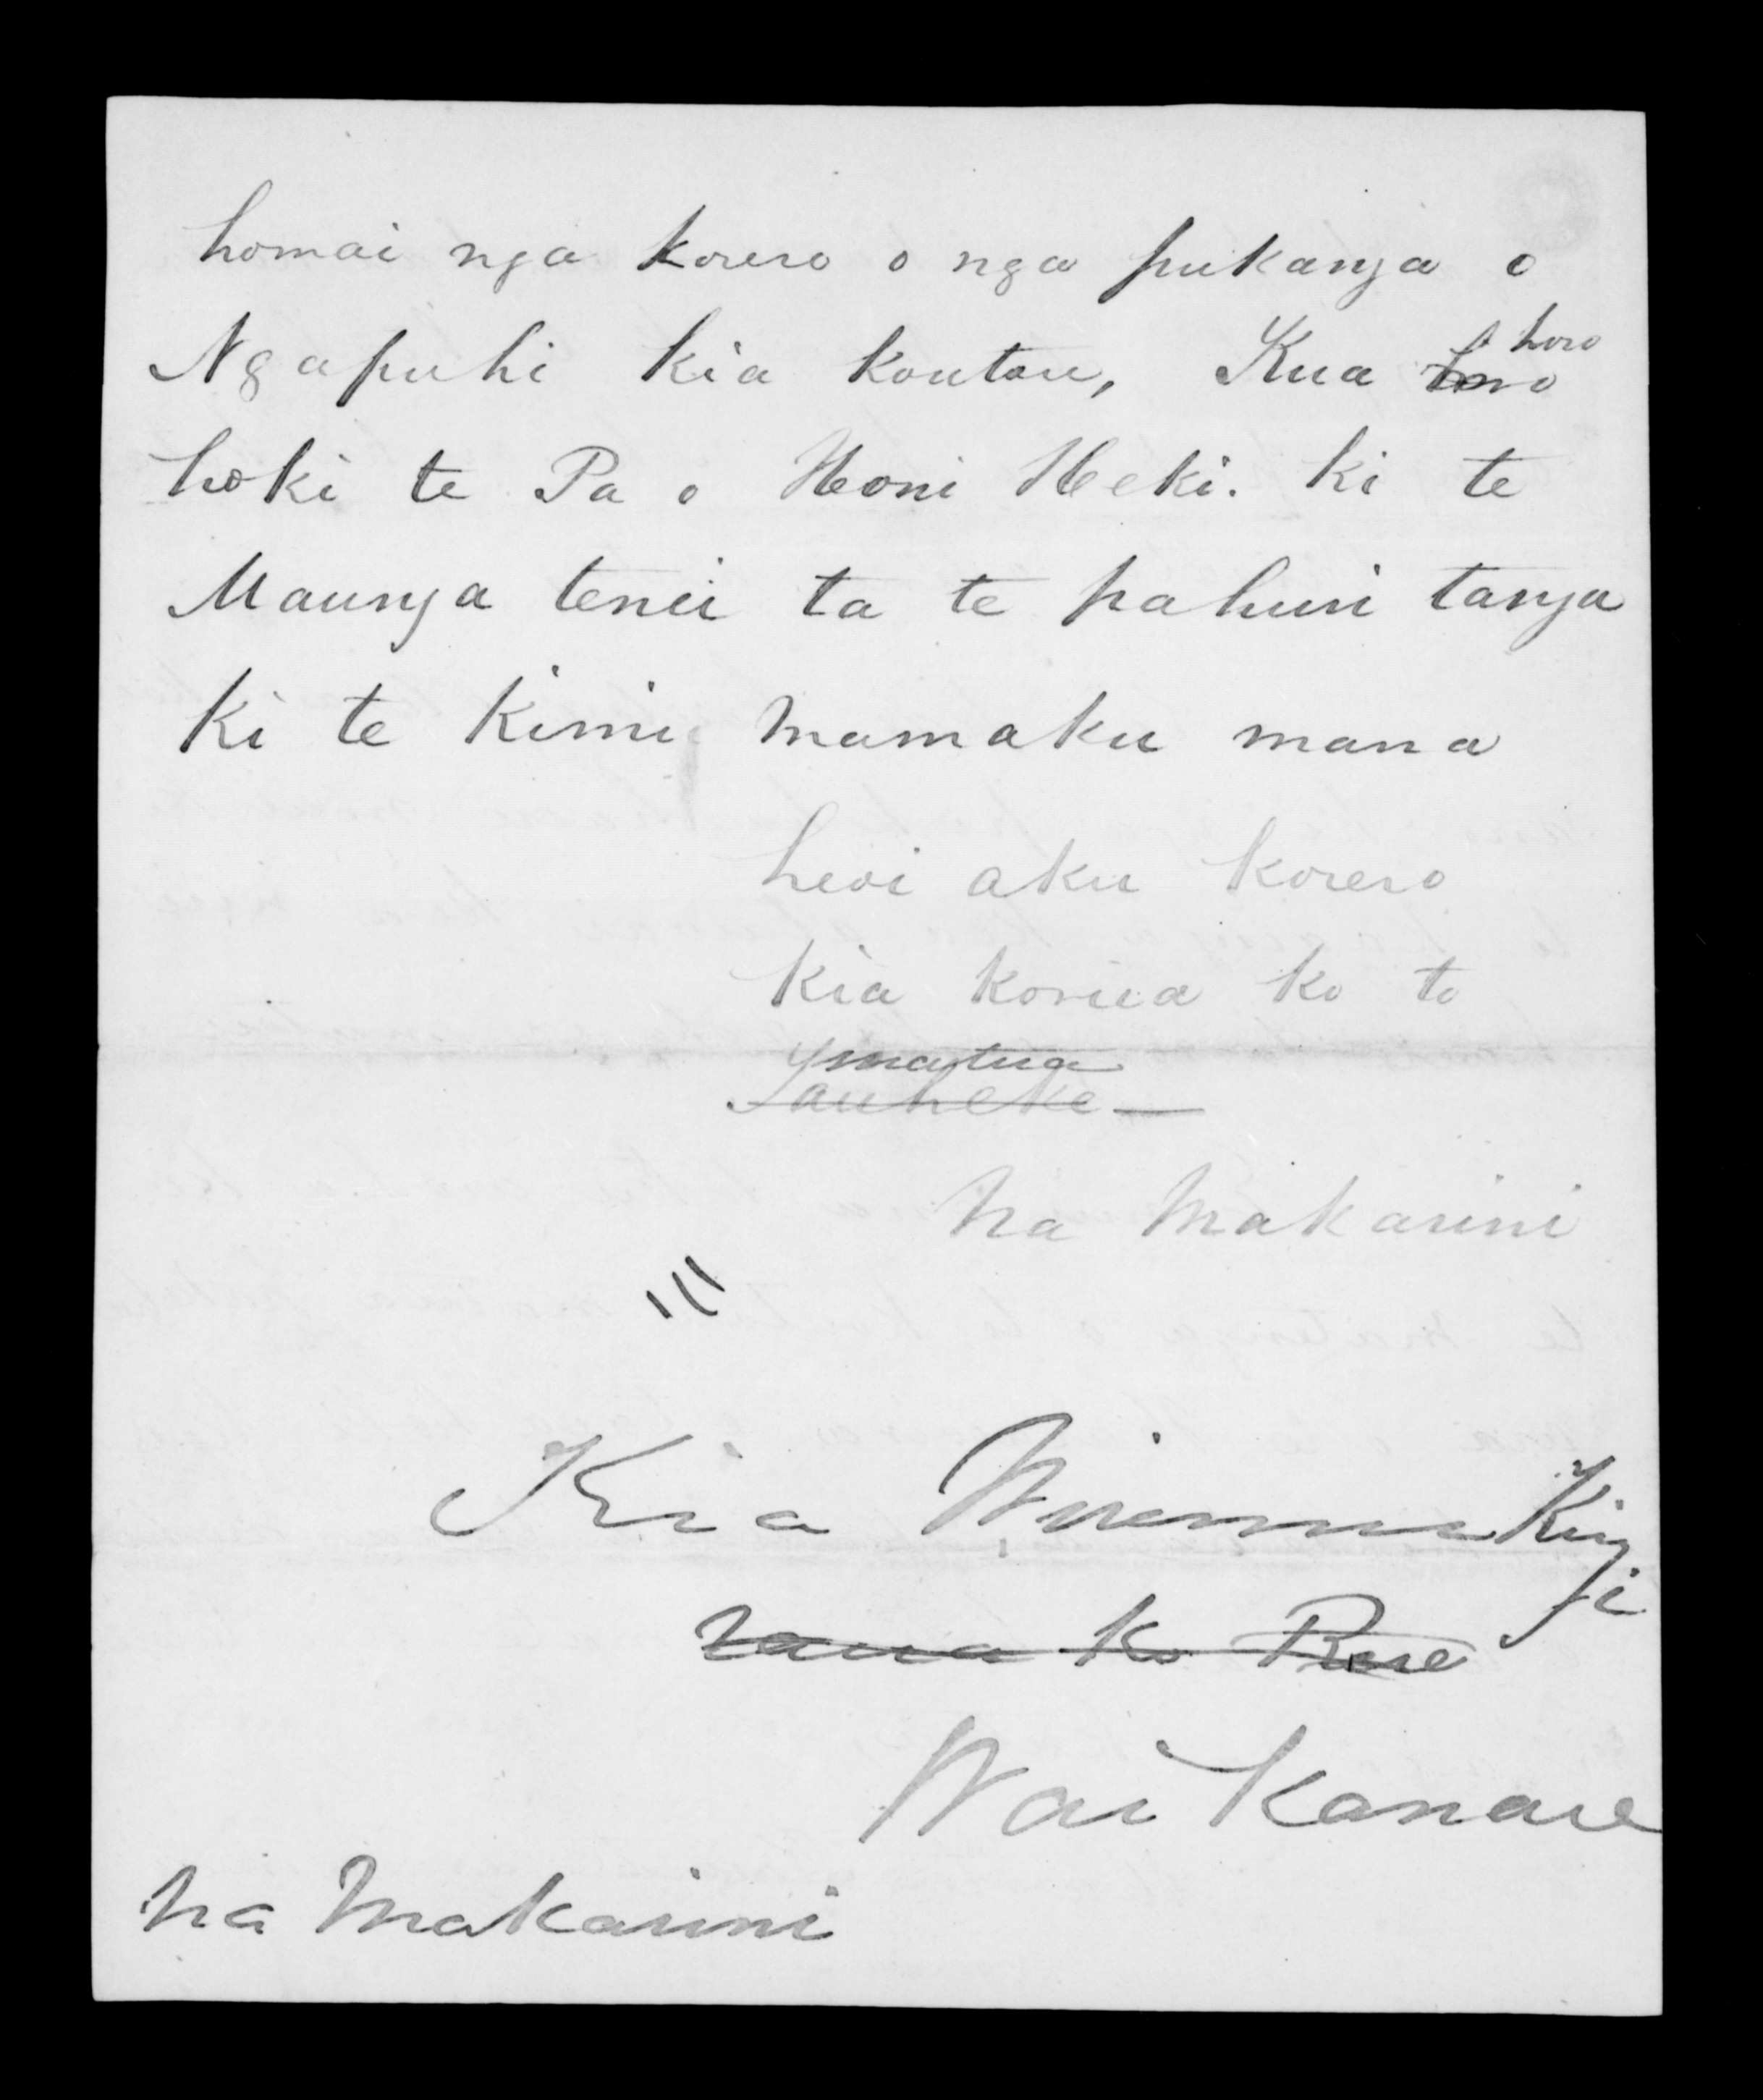 homai nga korero o nga pukanga o
Ngapuhi kia koutou, Kua horo
hoki te Pa o Honi Heki. Ki te
Maunga tenei ta te pahuri tanga
Ki te Kimi mamaku mana
heoi aku korero
Kia korua ko to
matua
Tauheke
na Makarini
Kia Wiremu Kingi
raua ko Rere
Wai Kanae
na Makarini